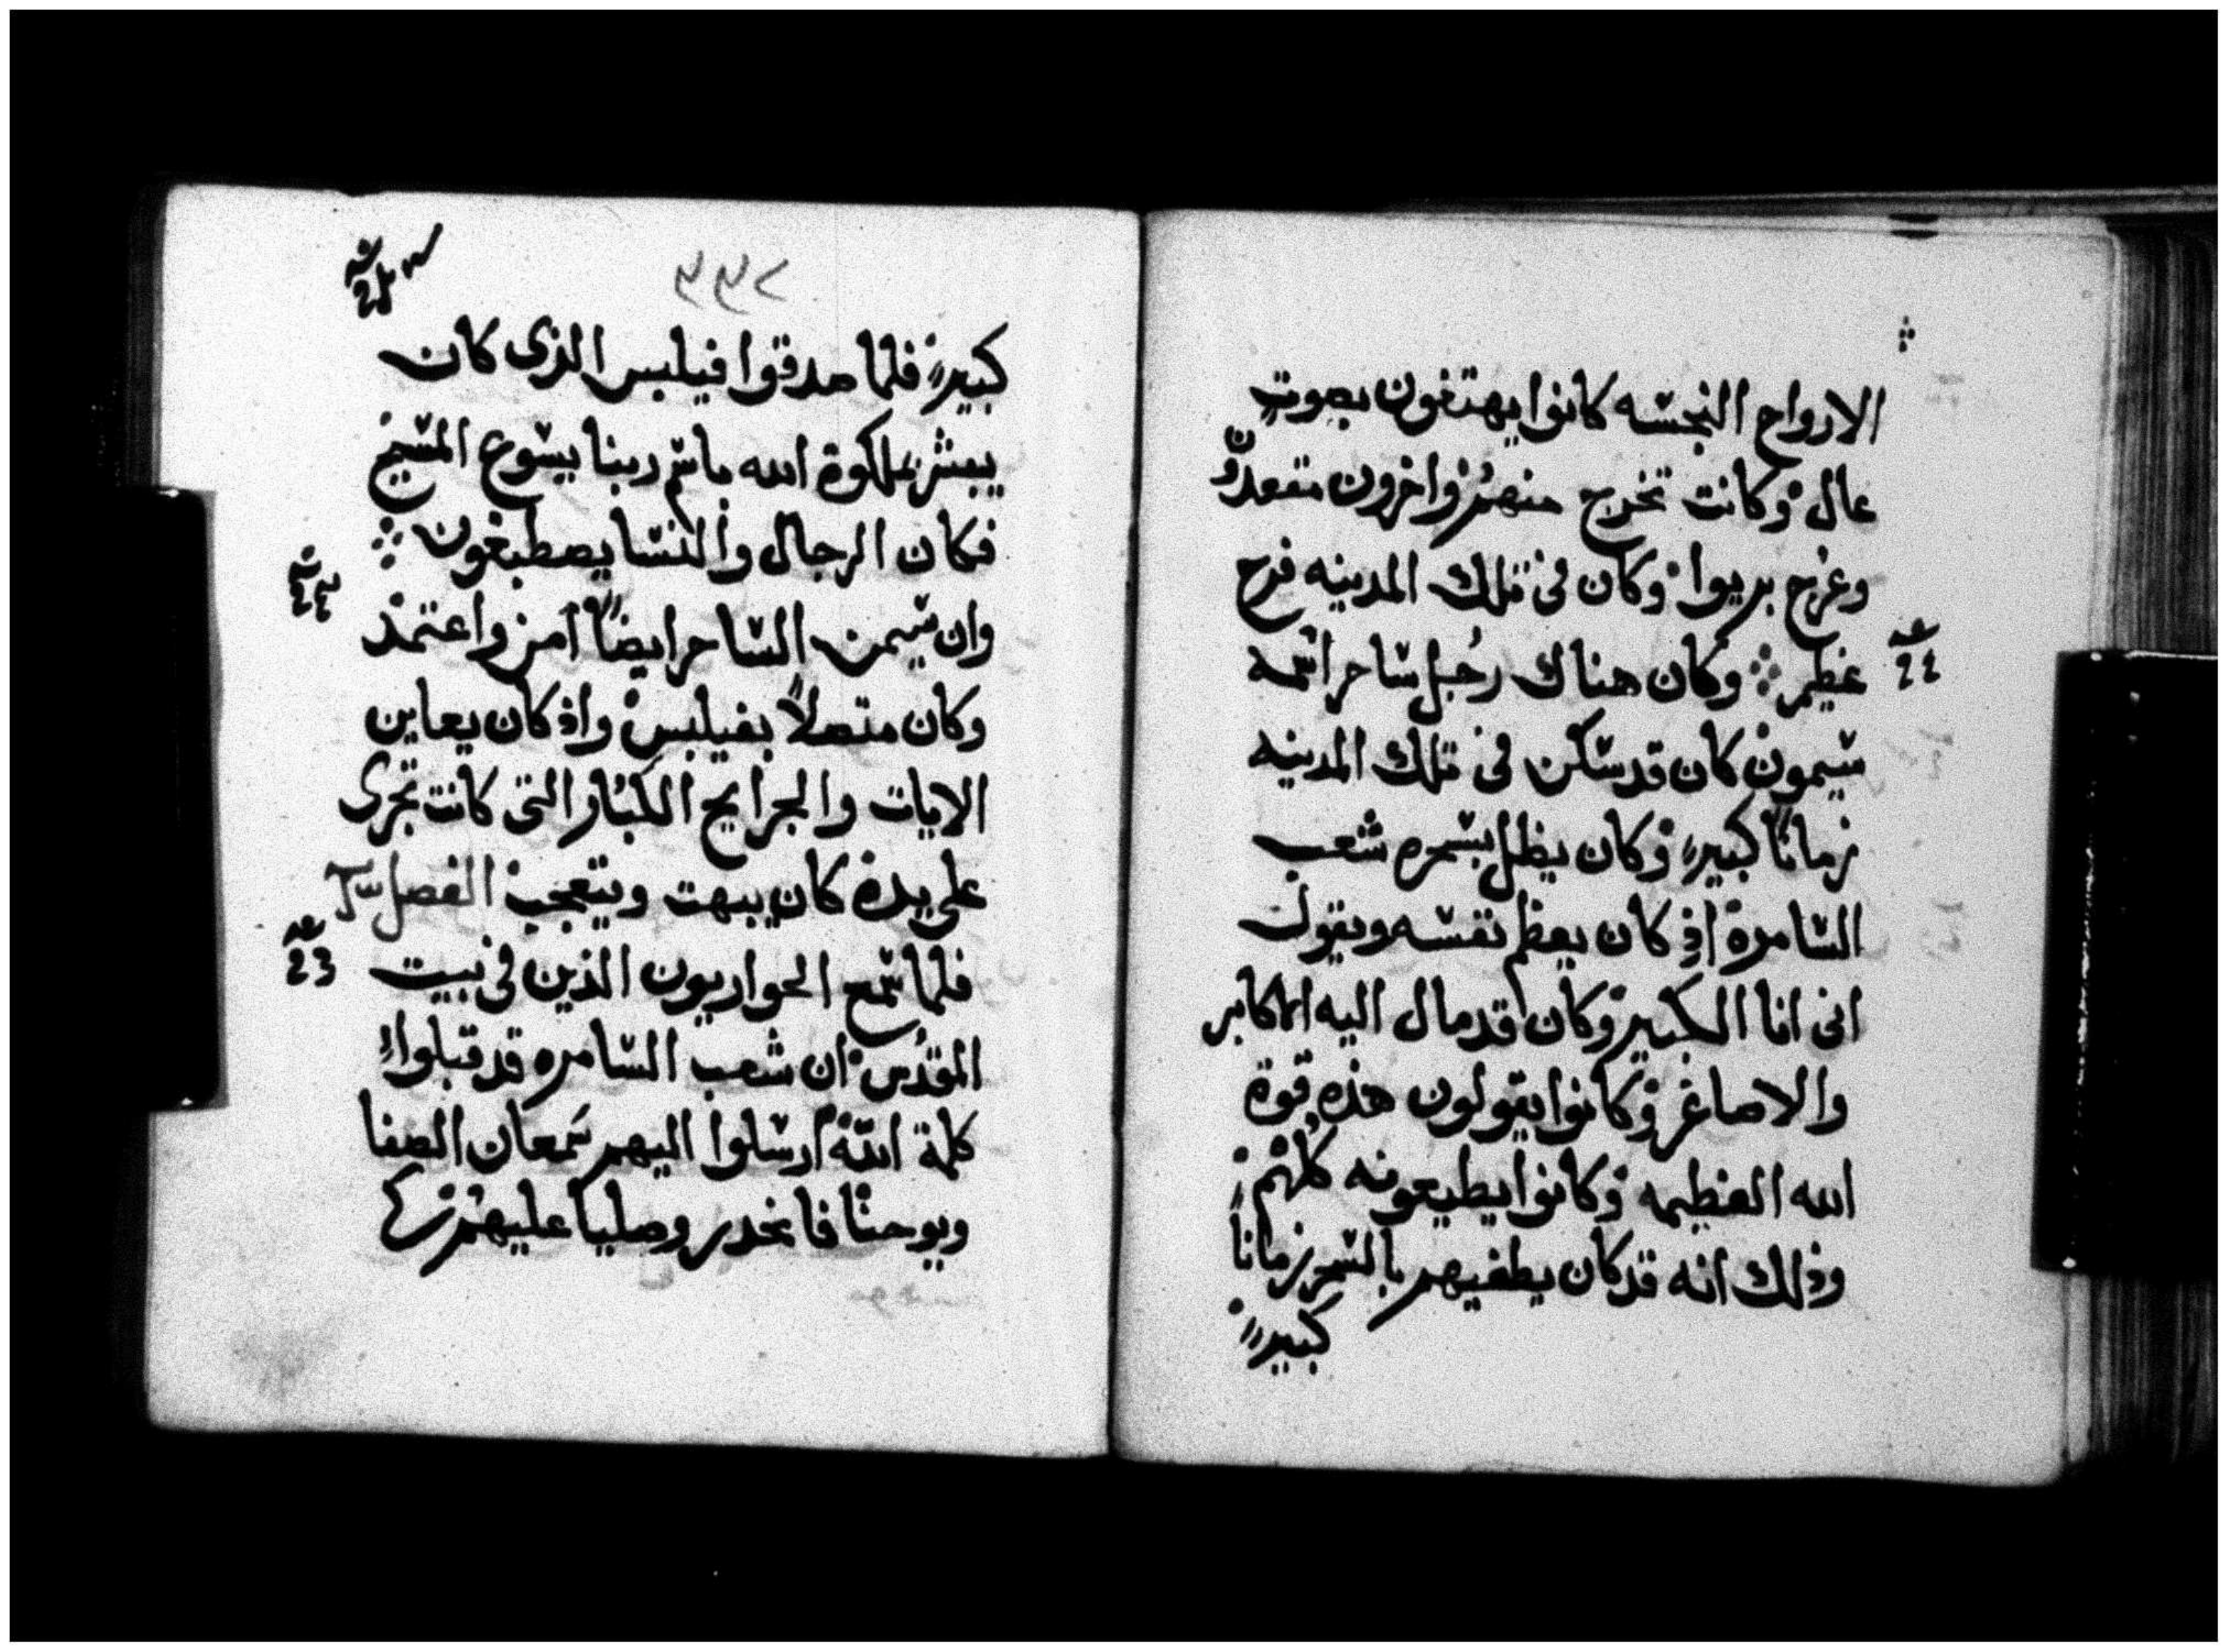 الارواح النجسه كانوا يهتفون بصوتٍ
عال وكانت تخرج منهم واخرون مقعدون
وعرج بريوا وكان في تلك المدينه فرح
عظيم وكان هناك رجل ساحر اسمه
سيمون كان قد سكن في تلك المدينه
زمانًا كبيرا وكان يظل بسحره شعب
السامرة اذ كان يعظم نفسه ويقول
انى انا الكبير وكان قد مال اليه الاكابر
والاصاغر وكانوا يقولون هذه قوة
الله العظيمه وكانوا يطيعونه كلهم
وذلك انه قد كان يطغيهم بالسحر زمانا
كبيرا
٣٣٧
كبيرا فلما صدقوا فيلبس الذى كان
يبشر بملكوة الله باسم ربنا يسوع المسيح
فكان الرجال والنسا يصطبغون
وان سيمن الساحر ايضًا آمن واعتمد
وكان متصلاً بفيلبس واذ كان يعاين
الايات والجرايح الكبار التى كانت تجرى
على يده كان يبهت ويتعجب الفصل
فلما سمع الحواريون الذين في بيت
المقدس ان شعب السامره قد قبلوا
كلمة الله ارسلوا اليهم سمعان الصفا
ويوحنا فانحدر وصليا عليهم